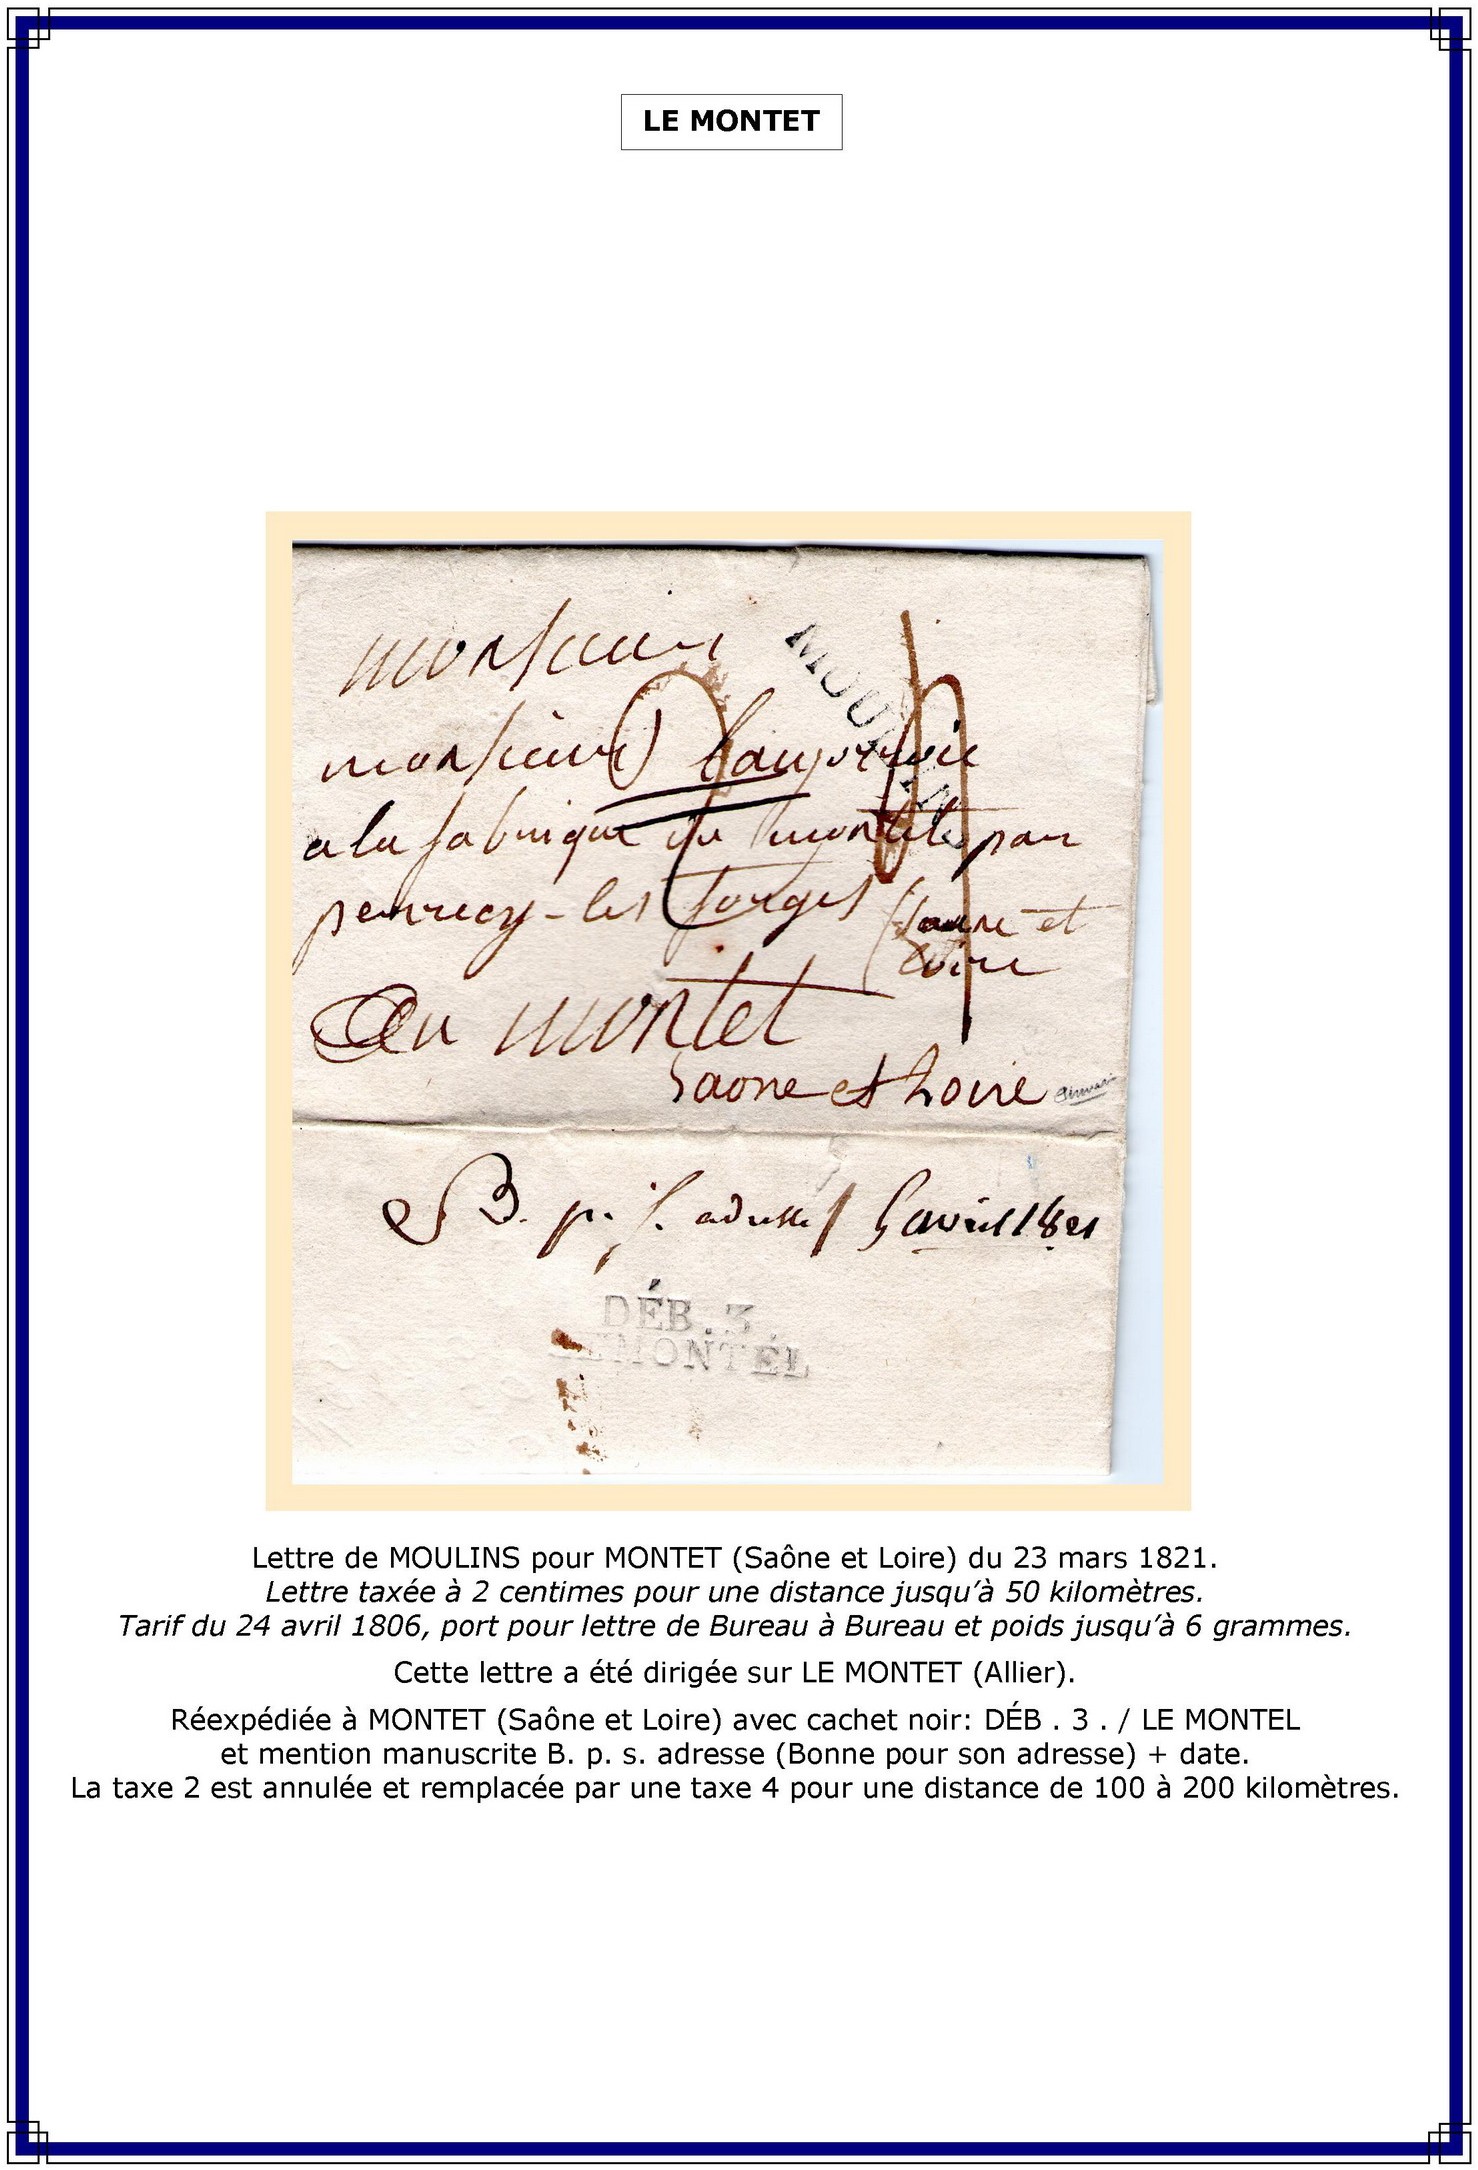 LE MONTET
monsieur
MOULINS
monsieur
a la fabrique du montet par
perrecy-les forges (saone et
Loire
Au montet
Saone et Loire
B. p. s. adresse 5 avril 1821
DÉB . 3 .
LE MONTEL
Lettre de MOULINS pour MONTET (Saône et Loire) du 23 mars 1821.
Lettre taxée à 2 centimes pour une distance jusqu’à 50 kilomètres.
Tarif du 24 avril 1806, port pour lettre de Bureau à Bureau et poids jusqu’à 6 grammes.
Cette lettre a été dirigée sur LE MONTET (Allier).
Réexpédiée à MONTET (Saône et Loire) avec cachet noir: DÉB . 3 . / LE MONTEL
et mention manuscrite B. p. s. adresse (Bonne pour son adresse) + date.
La taxe 2 est annulée et remplacée par une taxe 4 pour une distance de 100 à 200 kilomètres.